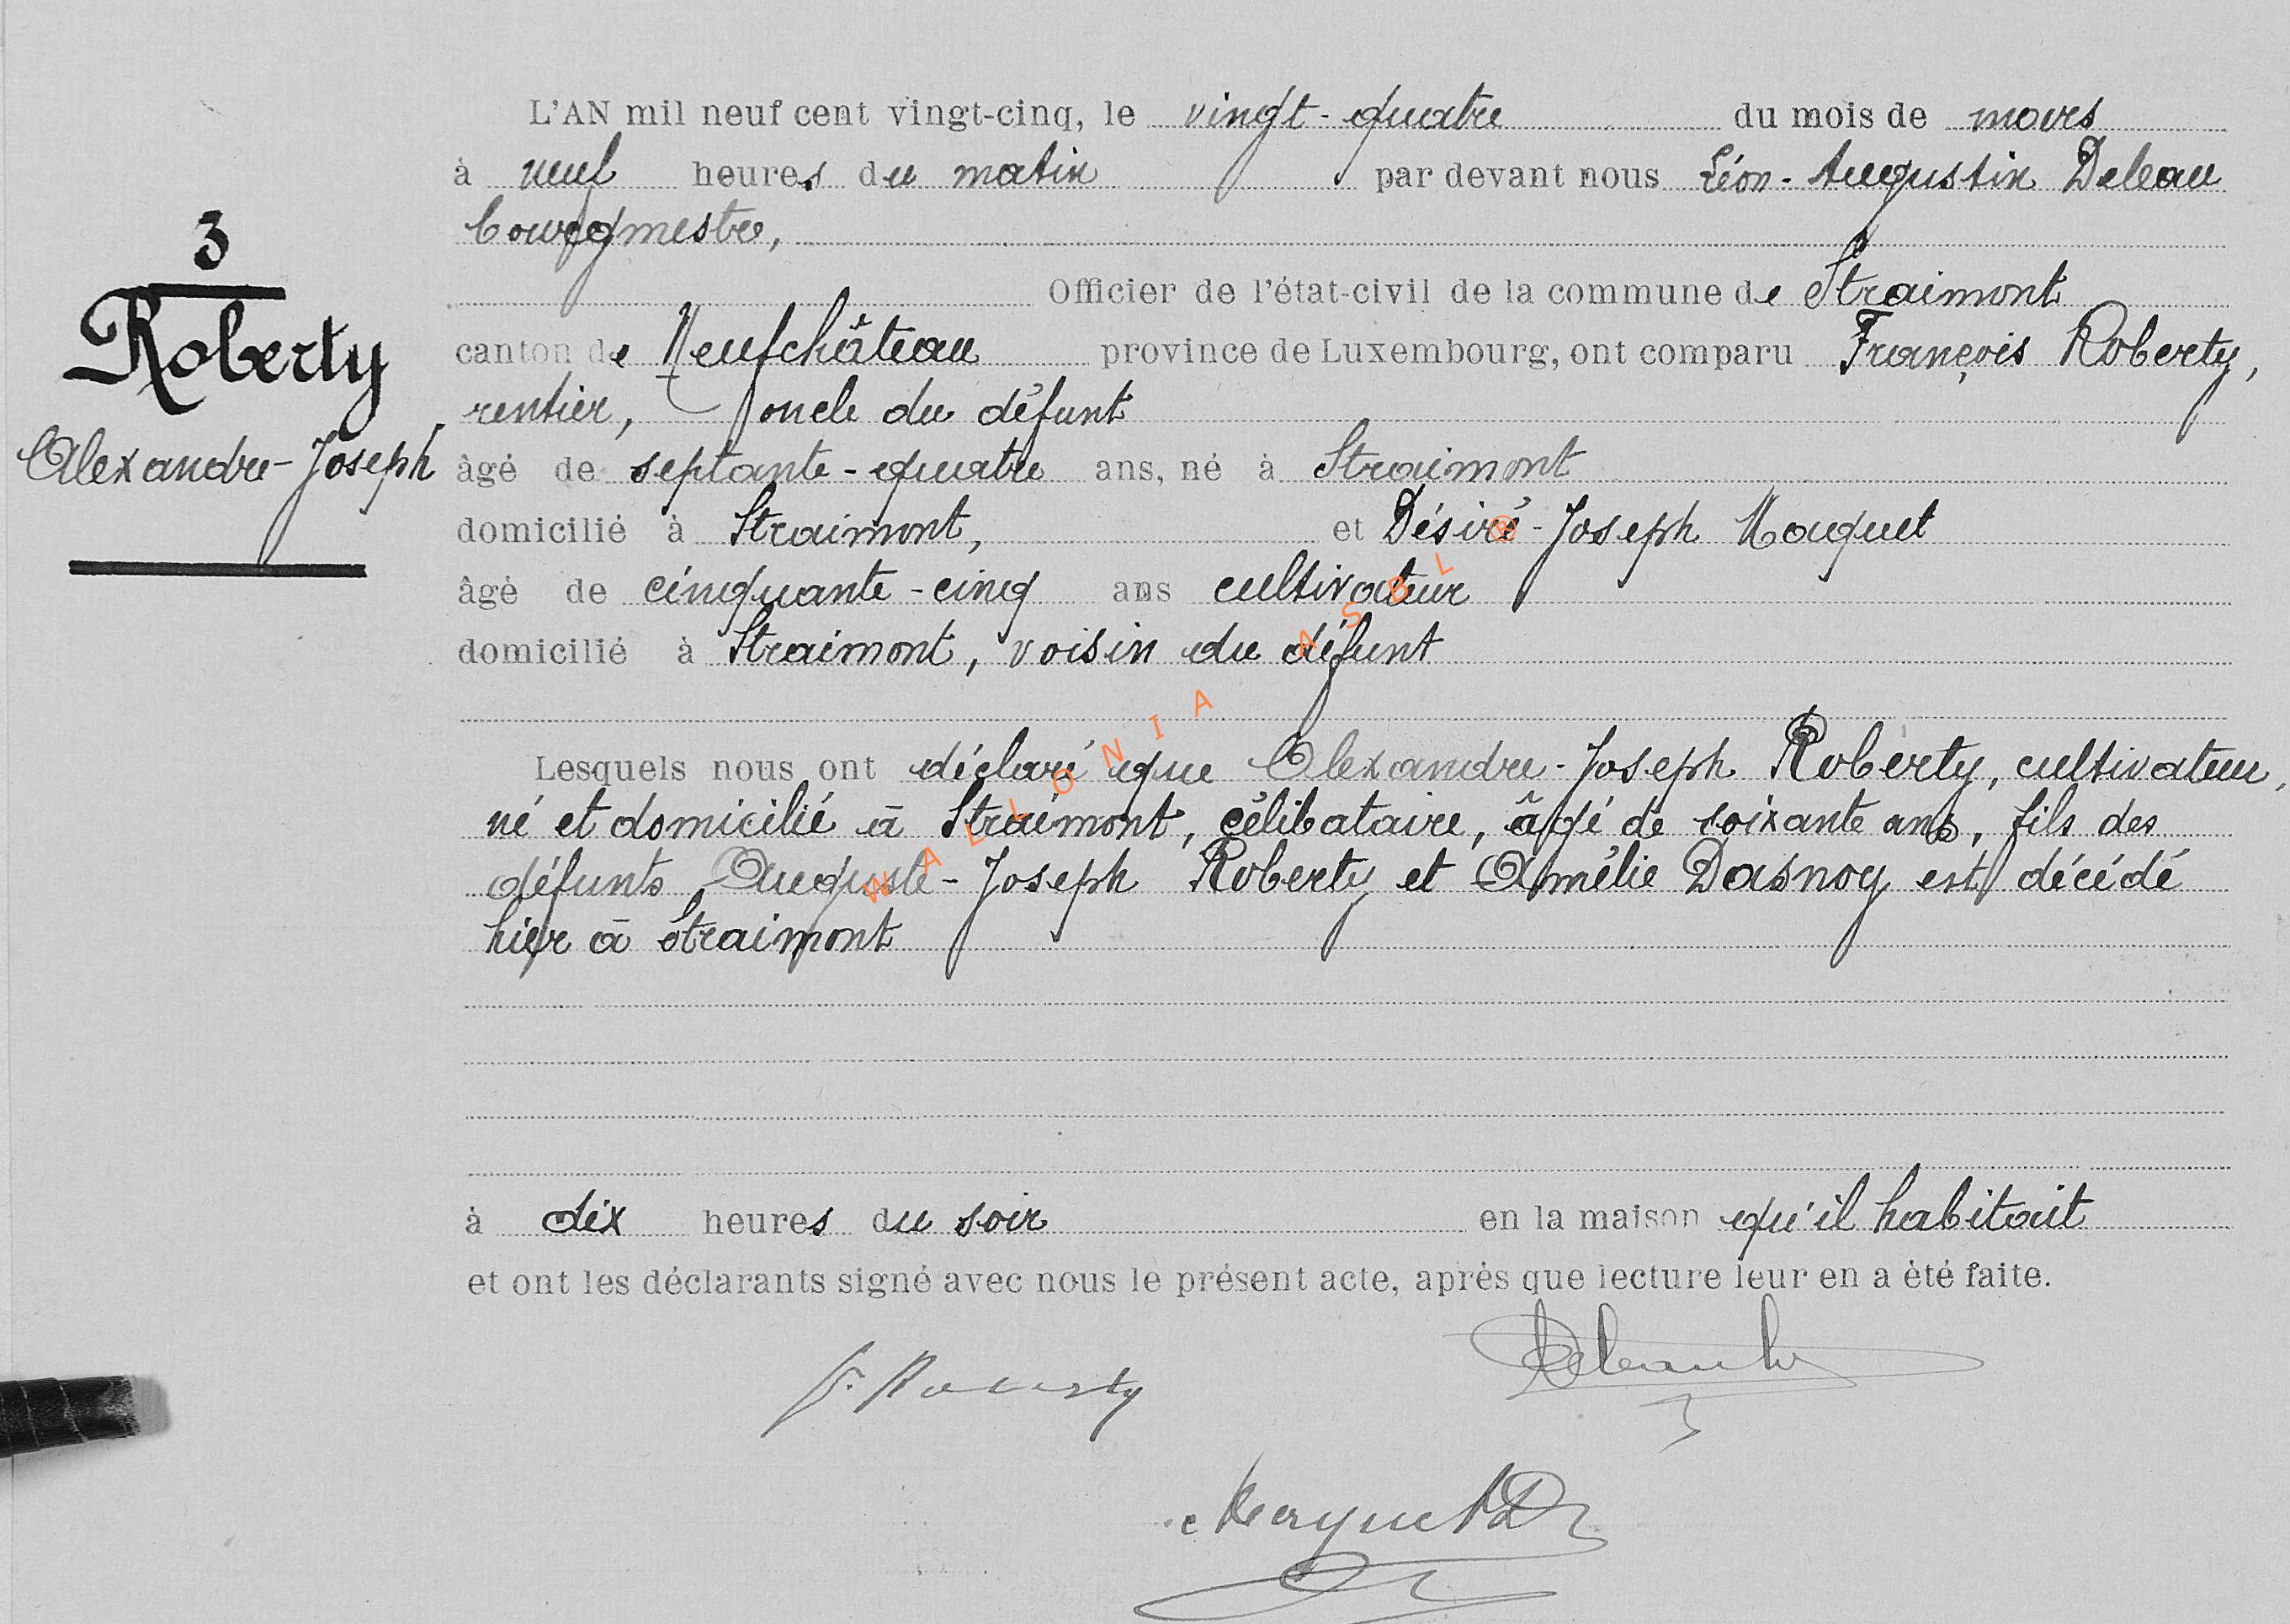 L'AN mil neuf cent vingt-cinq, le vingt-quatre du mois de mars
à neuf heures du matin par devant nous Léon-Augustin Deleau
bourgmestre,
3
Officier de l'état-civil de la commune de Straimont
Roberty
canton de Neufchâteau province de Luxembourg, ont comparu François Roberty,
rentier, oncle du défunt
Alexandre-Joseph
âgé de septante-quatre ans, né à Straimont
domicilié à Straimont, et Désiré-Joseph Maquet
âgé de cinquante-cinq ans cultivateur
domicilié à Straimont, voisin du défunt
Lesquels nous ont déclaré que Alexandre-Joseph Roberty, cultivateur,
né et domicilié à Straimont, célibataire, âgé de soixante ans, fils des
défunts Auguste-Joseph Roberty et Amélie Dasnoy est décédé
hier à Straimont
à dix heures du soir en la maison qu'il habitait
et ont les déclarants signé avec nous le présent acte, après que lecture leur en a été faite.
F. Roberty
Maquet D
WALLONIA ASBL ®